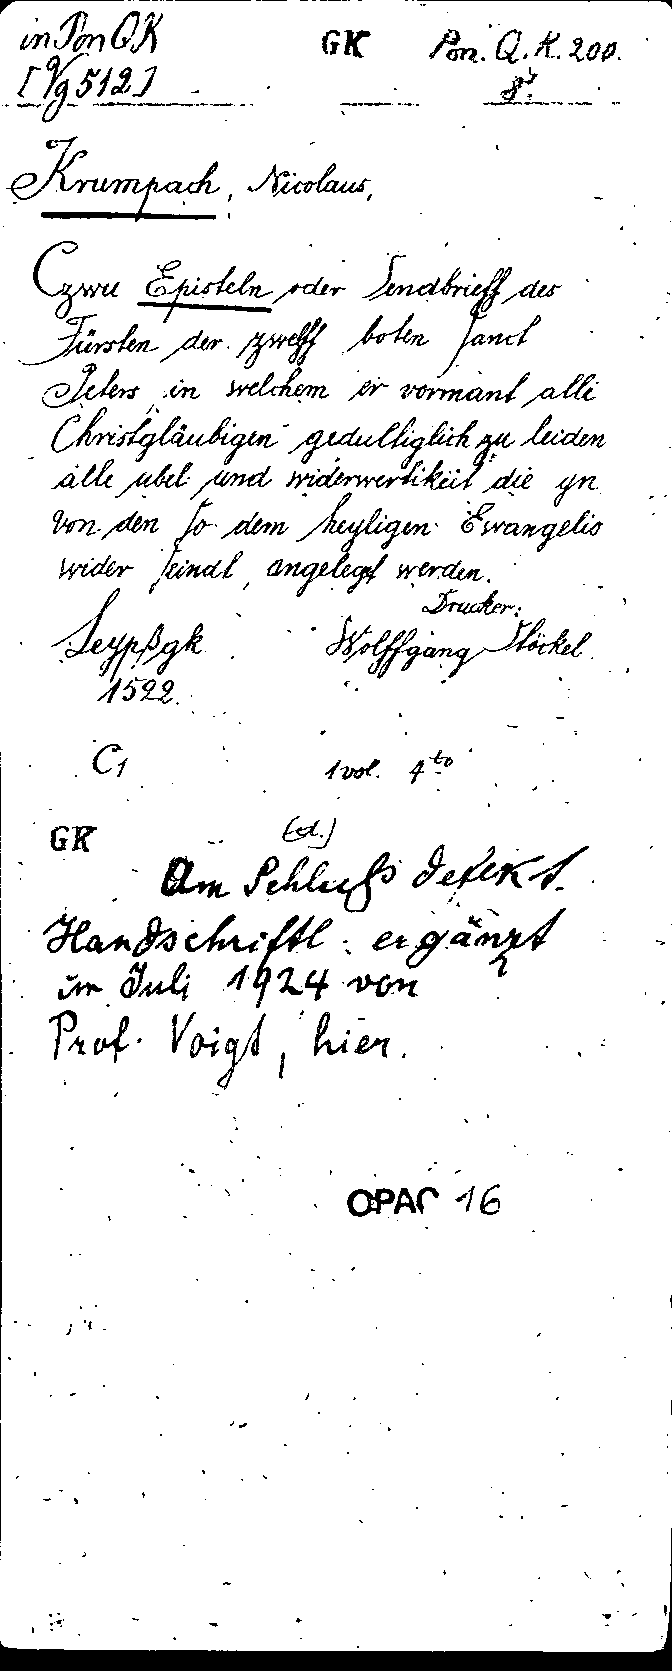 in Pon QK GK Pon. Q. K. 200.
[Vg 512] 8°
Krumpach, Nicolaus,
Czwu Episteln oder Sendbrieff des
Fürsten der zwelff boten sanct
Peters in welchem er vormant alle
Christgläubigen gedultiglich zu leiden
alle ubel und widerwertikeit die yn
von den so dem heyligen Ewangelio
wider seindt, angelegt werden.
Drucker:
Leypßgk Wolffgang Stöckel
1522.
C1 1 vol. 4to
GK
Am Schluß defekt.
Handschriftl. ergänzt
im Juli 1924 von
Prof. Voigt, hier.
OPAC 16